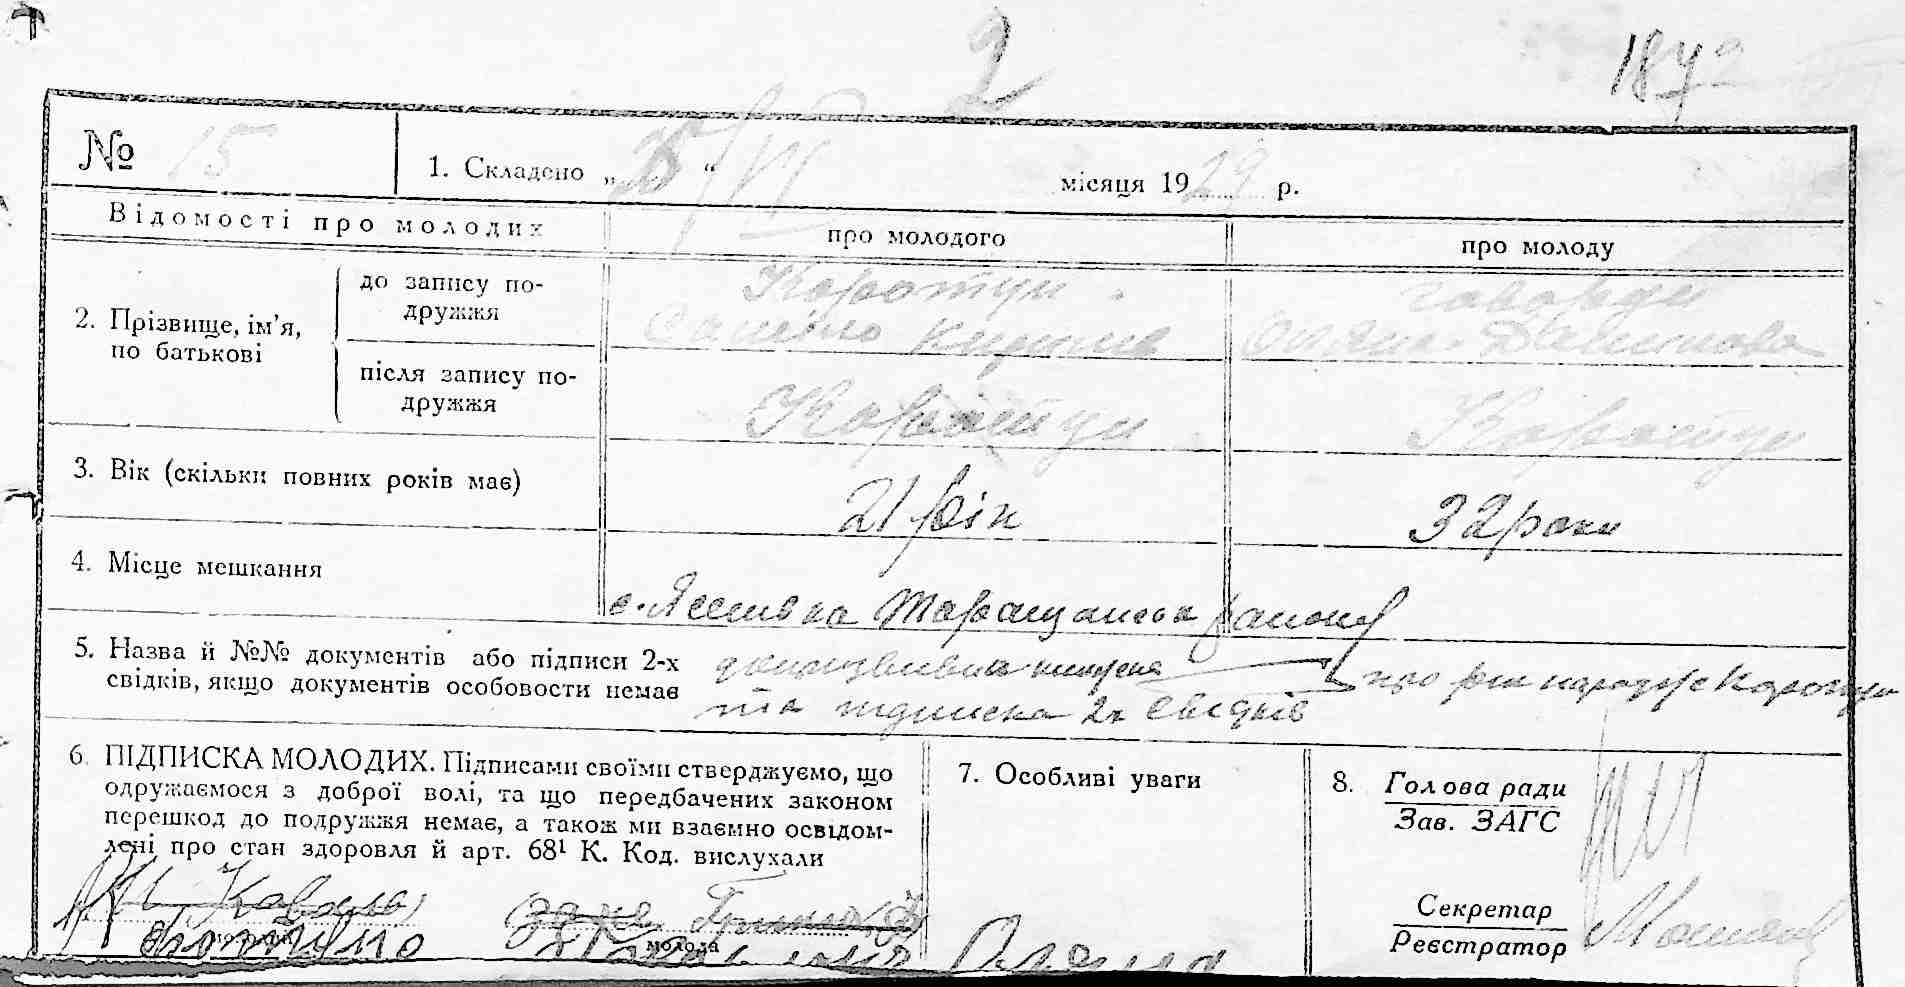 2
187
№ 15
1. Складено „25/VI“ місяця 1929 р.
Відомості про молодих
про молодого
про молоду
2. Прізвище, ім’я, по батькові
до запису по-
дружжя
Коротун
Кирилів
Говорун
Данилова
після запису по-
дружжя
Коротун
Коротун
3. Вік (скільки повних років має)
21 рік
32 роки
4. Місце мешкання
с. Ясенівка Таращанськ району
5. Назва й №№ документів або підписи 2-х
свідків, якщо документів особовости немає
про рік народже Коротун
та підписка 2х свідків
6. ПІДПИСКА МОЛОДИХ. Підписами своїми стверджуємо, що
одружаємося з доброї волі, та що передбачених законом
перешкод до подружжя немає, а також ми взаємно освідом-
лені про стан здоровля й арт. 68¹ К. Код. вислухали
Коваль
молода
7. Особливі уваги
8. Голова ради
Зав. ЗАГС
Секретар
Реєстратор